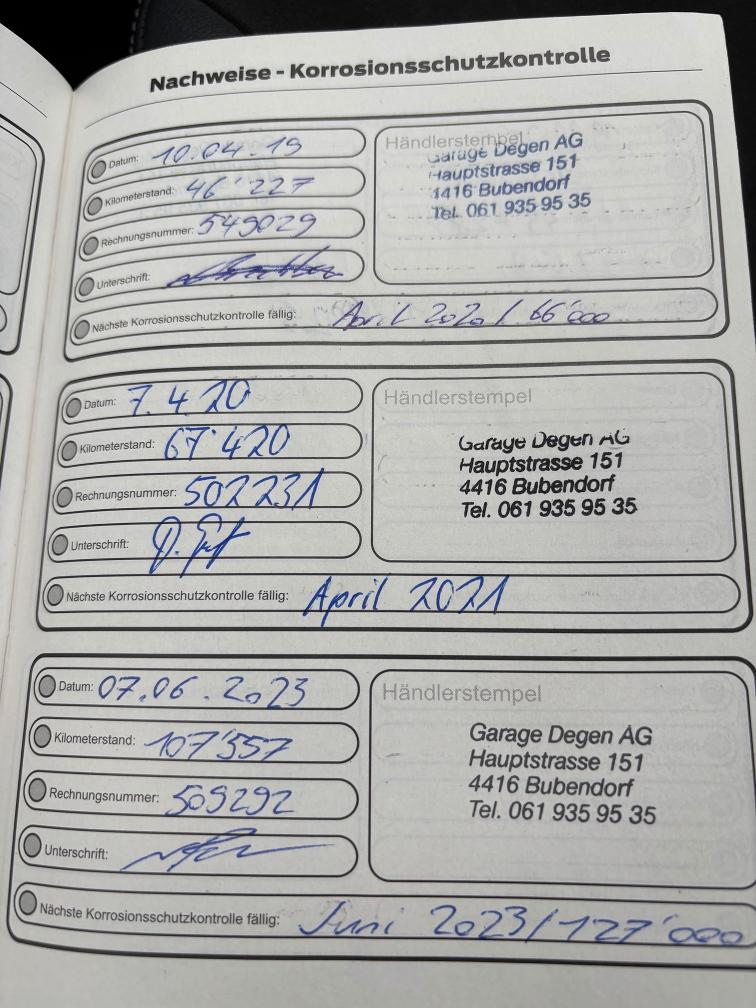 Nachweise - Korrosionsschutzkontrolle
Datum: 10.04.19
Kilometerstand: 46'227
Rechnungsnummer: 549029
Unterschrift:
Händlerstempel
Garage Degen AG
Hauptstrasse 151
4416 Bubendorf
Tel. 061 935 95 35
Nächste Korrosionsschutzkontrolle fällig: April 2020 / 66'000
Datum: 7.4.20
Kilometerstand: 67'420
Rechnungsnummer: 502231
Unterschrift:
Händlerstempel
Garage Degen AG
Hauptstrasse 151
4416 Bubendorf
Tel. 061 935 95 35
Nächste Korrosionsschutzkontrolle fällig: April 2021
Datum: 07.06.2023
Kilometerstand: 107'557
Rechnungsnummer: 509292
Unterschrift:
Händlerstempel
Garage Degen AG
Hauptstrasse 151
4416 Bubendorf
Tel. 061 935 95 35
Nächste Korrosionsschutzkontrolle fällig: Juni 2023/127'000